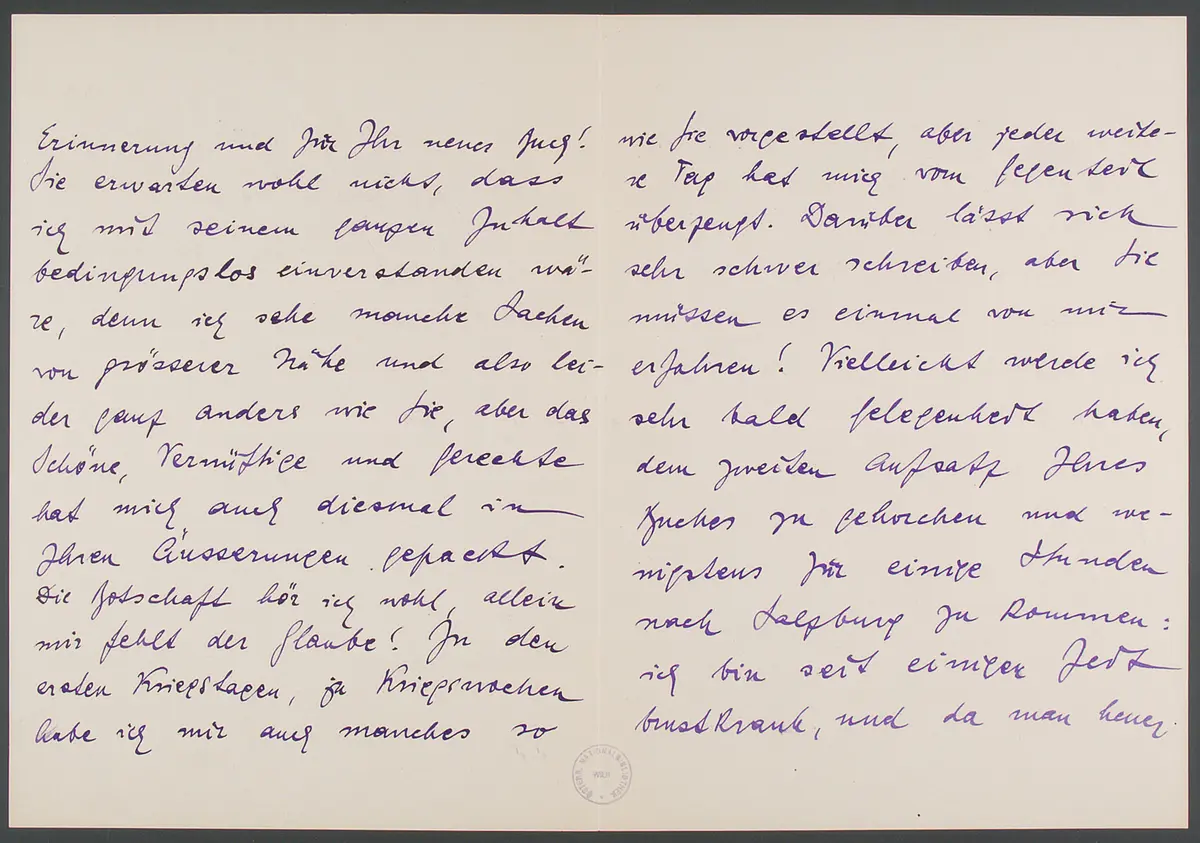 Erinnerung und für Ihr neues Buch!
Sie erwarten wohl nicht, dass
ich mit seinem ganzen Inhalt
bedingungslos einverstanden wä-
re, denn ich sehe manche Sachen
von grösserer Nähe und also lei-
der ganz anders wie Sie, aber das
Schöne, Vernüftige und Gerechte
hat mich auch diesmal in
Ihren Äusserungen gepackt.
Die Botschaft hör ich wohl, allein
mir fehlt der Glaube! In den
ersten Kriegstagen, ja Kriegswochen
habe ich mir auch manches so
wie Sie vorgestellt, aber jeder weite-
re Tag hat mich vom Gegenteil
überzeugt. Darüber lässt sich
sehr schwer schreiben, aber Sie
müssen es einmal von mir
erfahren! Vielleicht werde ich
sehr bald Gelegenheit haben,
dem zweiten Aufsatz Ihres
Buches zu gehorchen und we-
nigstens für einige Stunden
nach Salzburg zu kommen:
ich bin seit einiger Zeit
brustkrank, und da man heuer
ÖSTERR. NATIONALBIBLIOTHEK
WIEN